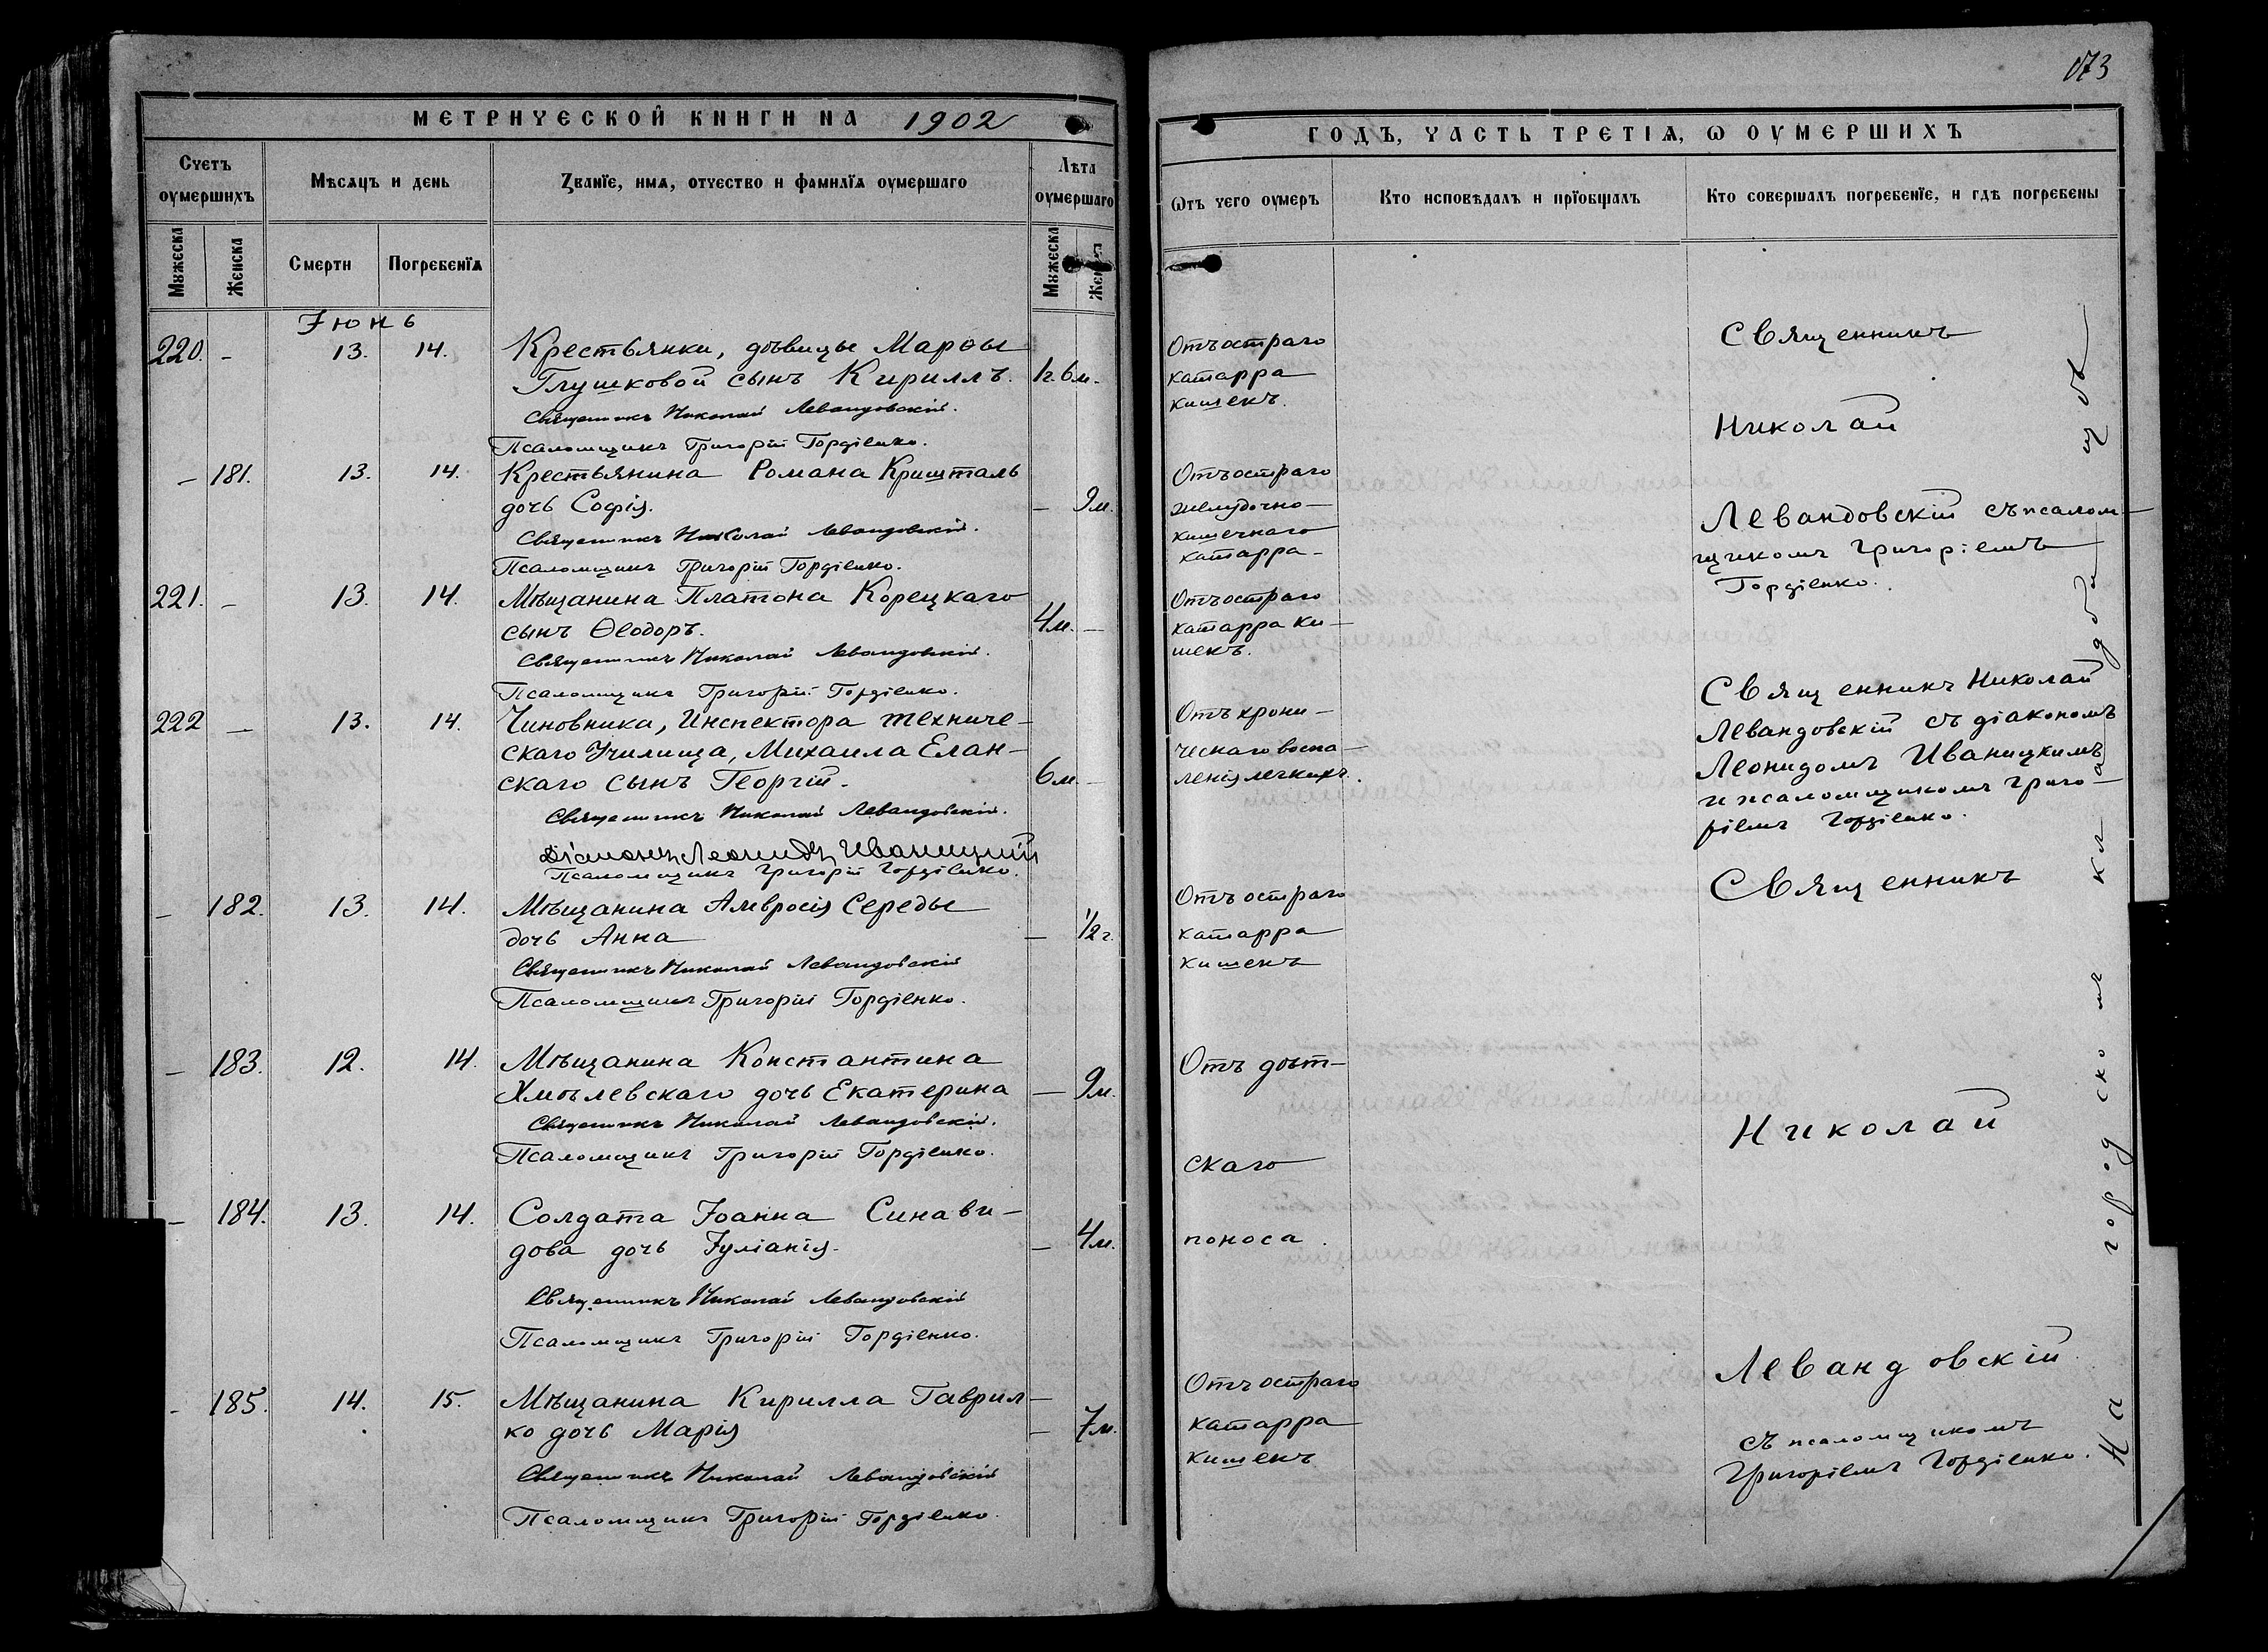 073
МЕТРИЧЕСКОЙ КНИГИ НА 1902
ГОДЪ, ЧАСТЬ ТРЕТІѦ, Ѡ ОУМЕРШИХЪ
Счетъ оумершихъ
Мѣсѧцъ и день
Званїе, имѧ, отчество и фамилїѧ оумершаго
Лѣта оумершаго
Ѿтъ чего оумеръ
Кто исповѣдалъ и прїобщалъ
Кто совершалъ погребенїе, и гдѣ погребены
Мꙋжеска
Женска
Смерти
Погребенїѧ
Мꙋжеска
Женска
Іюнь
220. - 13. 14.
Крестьянки, дѣвицы Марѳы
Глушковой сынъ Кириллъ. 1г. 6м. -
Священникъ Николай Левандовскій.
Псаломщикъ Григорій Гордіенко.
Отъ остраго
катарра
кишекъ.
- 181. 13. 14.
Крестьянина Романа Кришталь
дочь Софія. - 9м.
Священникъ Николай Левандовскій.
Псаломщикъ Григорій Гордіенко.
Отъ остраго
желудочно-
кишечнаго
катарра -
Священникъ
Николай
Левандовскій съ псалом-
щикомъ Григоріемъ
Гордіенко.
221. - 13. 14.
Мѣщанина Платона Корецкаго
сынъ Ѳеодоръ. 4м. -
Священникъ Николай Левандовскій.
Псаломщикъ Григорій Гордіенко.
Отъ остраго
катарра ки-
шекъ.
222 - 13. 14.
Чиновника, Инспектора техниче-
скаго Училища, Михаила Елан-
скаго сынъ Георгій. 6м. -
Священникъ Николай Левандовскій.
Діаконъ Леонидъ Иваницкій
Псаломщикъ Григорій Гордіенко.
Отъ хрони-
ческаго воспа-
ленія легкихъ.
Священникъ Николай
Левандовскій съ діакономъ
Леонидомъ Иваницкимъ
и псаломщикомъ Григо-
ріемъ Гордіенко.
- 182. 13. 14.
Мѣщанина Амвросія Середы
дочь Анна - 1/2 г.
Священникъ Николай Левандовскій
Псаломщикъ Григорій Гордіенко.
Отъ остраго
катарра
кишекъ
- 183. 12. 14.
Мѣщанина Константина
Хмѣлевскаго дочь Екатерина - 9м.
Священникъ Николай Левандовскій.
Псаломщикъ Григорій Гордіенко.
Отъ дѣт-
скаго
поноса.
- 184. 13. 14.
Солдата Іоанна Синави-
дова дочь Іуліанія. - 4м.
Священникъ Николай Левандовскій
Псаломщикъ Григорій Гордіенко.
- 185. 14. 15.
Мѣщанина Кирилла Гаврил-
ко дочь Марія - 7м.
Священникъ Николай Левандовскій
Псаломщикъ Григорій Гордіенко.
Отъ остраго
катарра
кишекъ
Священникъ
Николай
Левандовскій
съ псаломщикомъ
Григоріемъ Гордіенко.
На городскомъ кладбищѣ